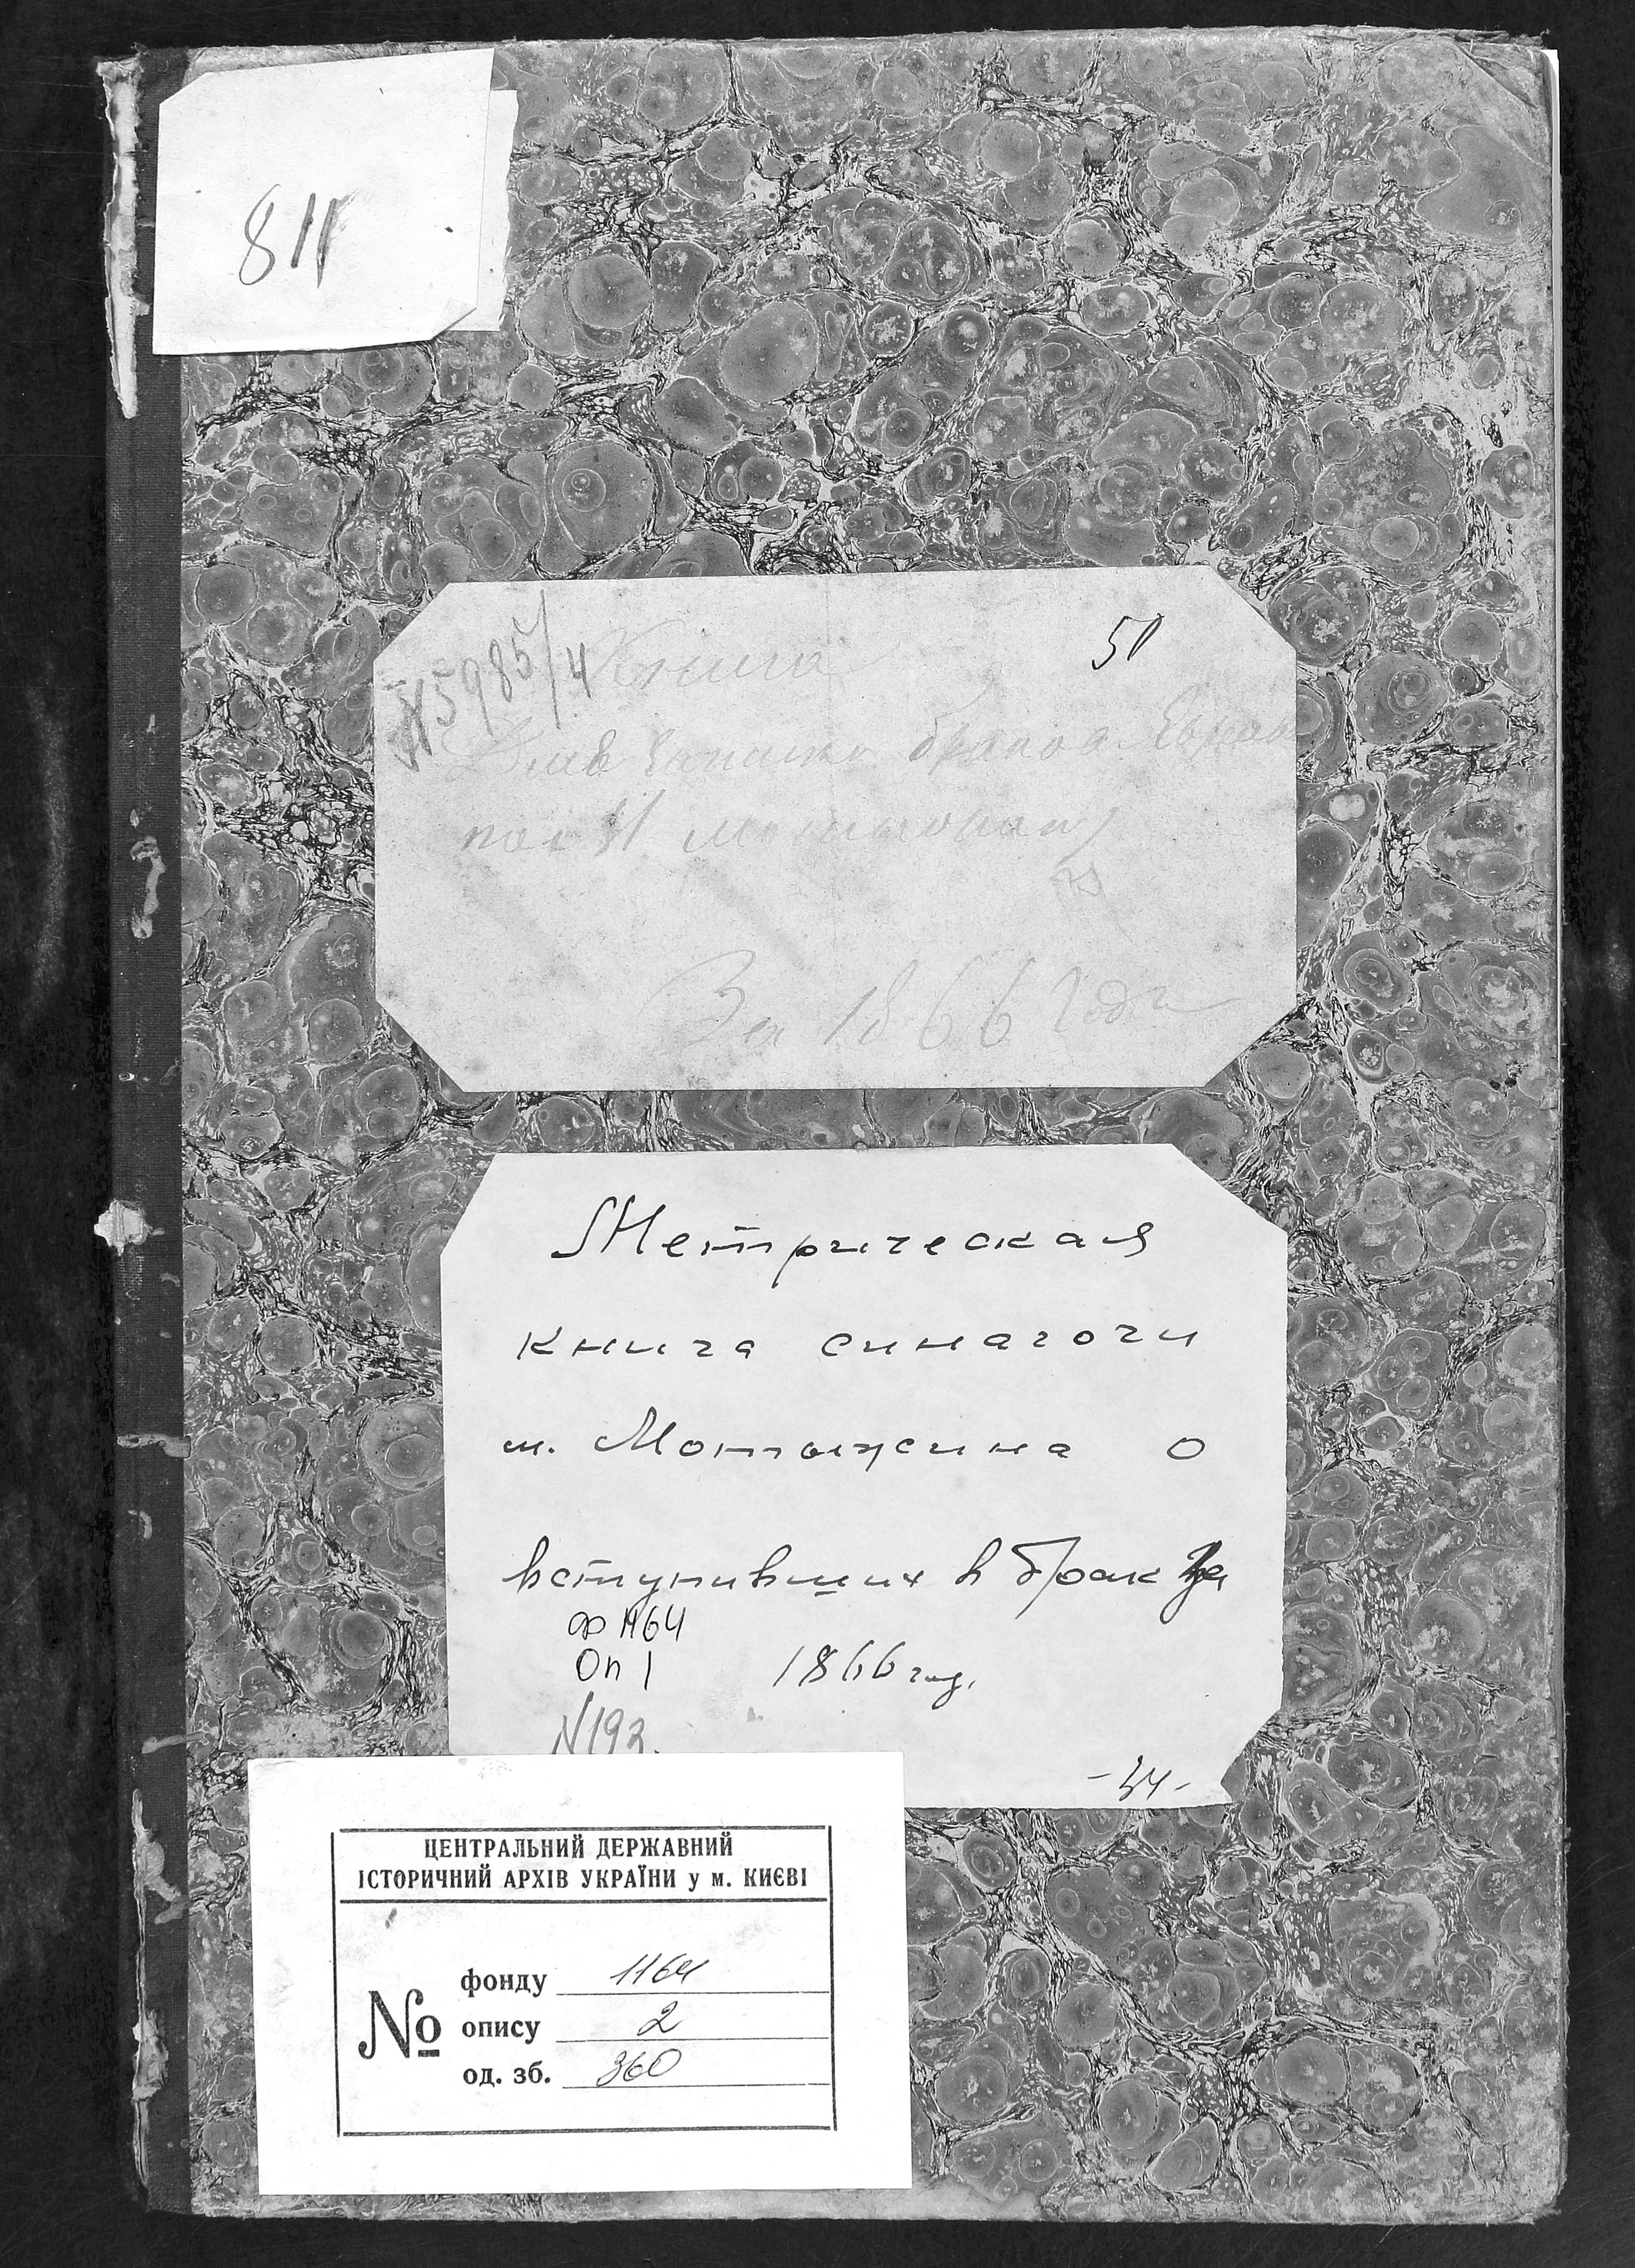 811
№5985/4
Книга
51
Для записки браков Евреев
по М
За 1866 годъ
Метрическая
книга синагоги
м. Мотыжина о
вступивших в брак за
ф 1164
Оп 1
1866 год.
N193.
-34-
ЦЕНТРАЛЬНИЙ ДЕРЖАВНИЙ
ІСТОРИЧНИЙ АРХІВ УКРАЇНИ у м. КИЄВІ
№
фонду 1164
опису 2
од. зб. 360